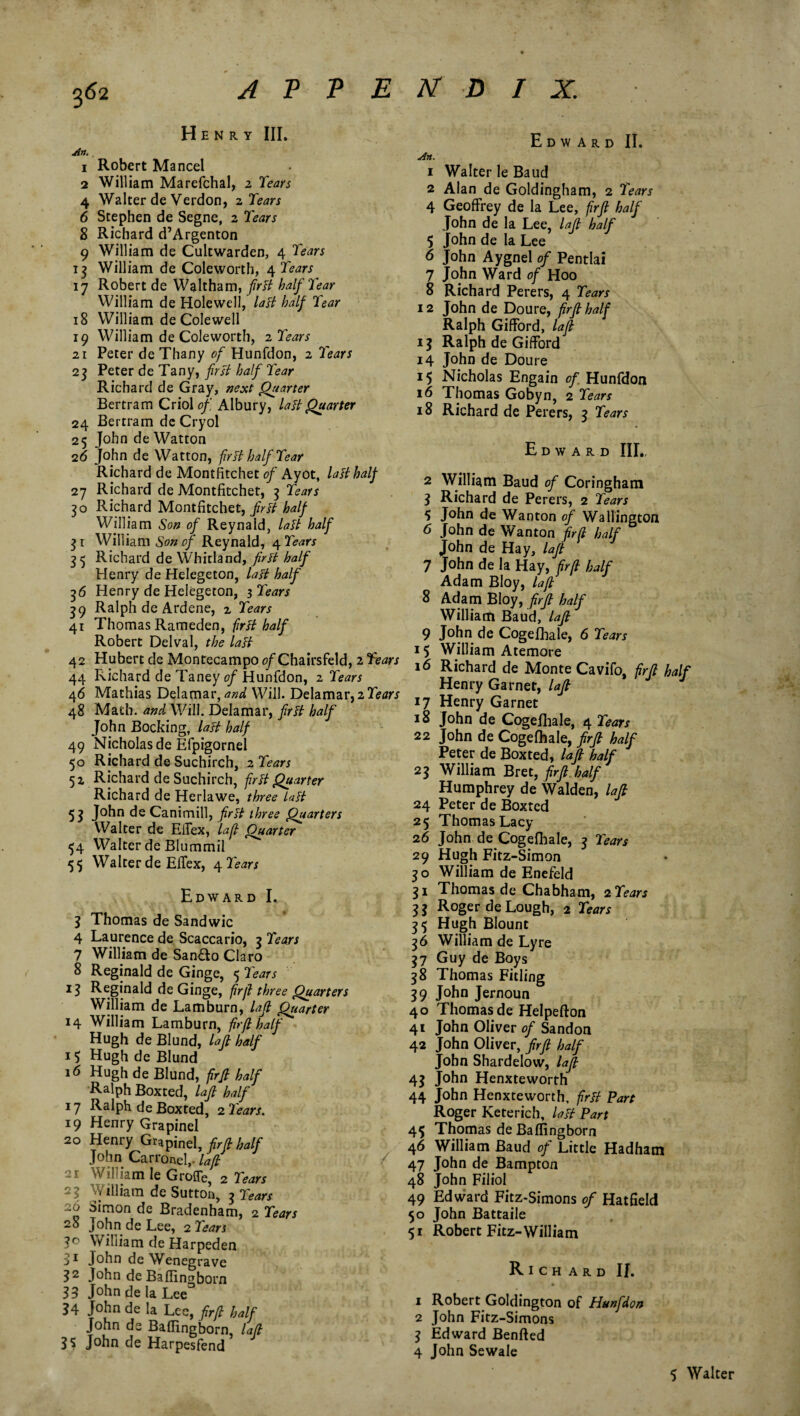 362 APPENDIX.
Henry III.
An.
1 Robert Mancel
2 William Mareſchal, 2 Years
4 Walter de Verdon, 2 Years
6 Stephen de Segne, 2 Years
8 Richard d'Argenton
9 William de Cultwarden, 4 Years
13 William de Coleworth, 4 Years
17 Robert de Waltham, firſt half Year
William de Holewell, laſt half Year
18 William de Colewell
19 William de Coleworth, 2 Years
21 Peter de Thany of Hunſdon, 2 Years
23 Peter de Tany, firſt half Year
Richard de Gray, next Quarter
Bertram Criol of Albury, laſt Quarter
24 Bertram de Cryol
25 John de Watton
26 John de Watton, firſt half Year
Richard de Montfitchet of Ayot, laſt half
27 Richard de Montfitchet, 3 Years
30 Richard Montfitchet, firſt half
William Son of Reynald, laſt half
31 William Son of Reynald, 4 Years
35 Richard de Whitland, firſt half
Henry de Helegeton, laſt half
36 Henry de Helegeton, 3 Years
39 Ralph de Ardene, 2 Years
41 Thomas Rameden, firſt half
Robert Delval, the laſt
42 Hubert de Montecampo of Chairsfeld, 2 Years
44 Richard de Taney of Hunſdon, 2 Years
46 Mathias Delamar, and Will. Delamar, 2 Years
48 Math. and Will. Delamar, firſt half
John Bocking, laſt half
49 Nicholas de Eſpigornel
50 Richard de Suchirch, 2 Years
52 Richard de Suchirch, firſt Quarter
Richard de Herlawe, three laſt
53 John de Canimill, firſt three Quarters
Walter de Eſſex, laſt Quarter
54 Walter de Blummil
55 Walter de Eſſex, 4 Years
Edward I.
3 Thomas de Sandwic
4 Laurence de Scaccario, 3 Years
7 William de Sancto Claro
8 Reginald de Ginge, 5 Years
13 Reginald de Ginge, firſt three Quarters
William de Lamburn, laſt Quarter
14 William Lamburn, firſt half
Hugh de Blund, laſt half
15 Hugh de Blund
16 Hugh de Blund, firſt half
Ralph Boxted, laſt half
17 Ralph de Boxted, 2 Years.
19 Henry Grapinel
20 Henry Grapinel, firſt half
John Carronel, laſt
21 William le Groſſe, 2 Years
23 William de Sutton, 3 Years
26 Simon de Bradenham, 2 Years
28 John de Lee, 2 Years
30 William de Harpeden
31 John de Wenegrave
32 John de Baſſingborn
33 John de la Lee
34 John de la Lee, firſt half
John de Baſſingborn, laſt
35 John de Harpesfend
Edward II.
An.
1 Walter le Baud
2 Alan de Goldingham, 2 Years
4 Geoffrey de la Lee, firſt half
John de la Lee, laſt half
5 John de la Lee
6 John Aygnel of Pentlai
7 John Ward of Hoo
8 Richard Perers, 4 Years
12 John de Doure, firſt half
Ralph Gifford, laſt
13 Ralph de Gifford
14 John de Doure
15 Nicholas Engain of Hunſdon
16 Thomas Gobyn, 2 Years
18 Richard de Perers, 3 Years
Edward III.
2 William Baud of Coringham
3 Richard de Perers, 2 Years
5 John de Wanton of Wallington
6 John de Wanton firſt half
John de Hay, laſt
7 John de la Hay, firſt half
Adam Bloy, laſt
8 Adam Bloy, firſt half
William Baud, laſt
9 John de Cogeſhale, 6 Years
15 William Atemore
16 Richard de Monte Caviſo, firſt half
Henry Garnet, laſt
17 Henry Garnet
18 John de Cogeſhale, 4 Years
22 John de Cogeſhale, firſt half
Peter de Boxted, laſt half
23 William Bret, firſt half
Humphrey de Walden, laſt
24 Peter de Boxted
25 Thomas Lacy
26 John de Cogeſhale, 3 Years
29 Hugh Fitz-Simon
30 William de Enefeld
31 Thomas de Chabham, 2 Years
33 Roger de Lough, 2 Years
35 Hugh Blount
36 William de Lyre
37 Guy de Boys
38 Thomas Fitling
39 John Jernoun
40 Thomas de Helpeſton
41 John Oliver of Sandon
42 John Oliver, firſt half
John Shardelow, laſt
43 John Henxteworth
44 John Henxteworth, firſt Part
Roger Keterich, laſt Part
45 Thomas de Baſſingborn
46 William Baud of Little Hadham
47 John de Bampton
48 John Filiol
49 Edward Fitz-Simons of Hatfield
50 John Battaile
51 Robert Fitz-William
Richard II.
1 Robert Goldington of Hunſdon
2 John Fitz-Simons
3 Edward Benſted
4 John Sewale
5 Walter